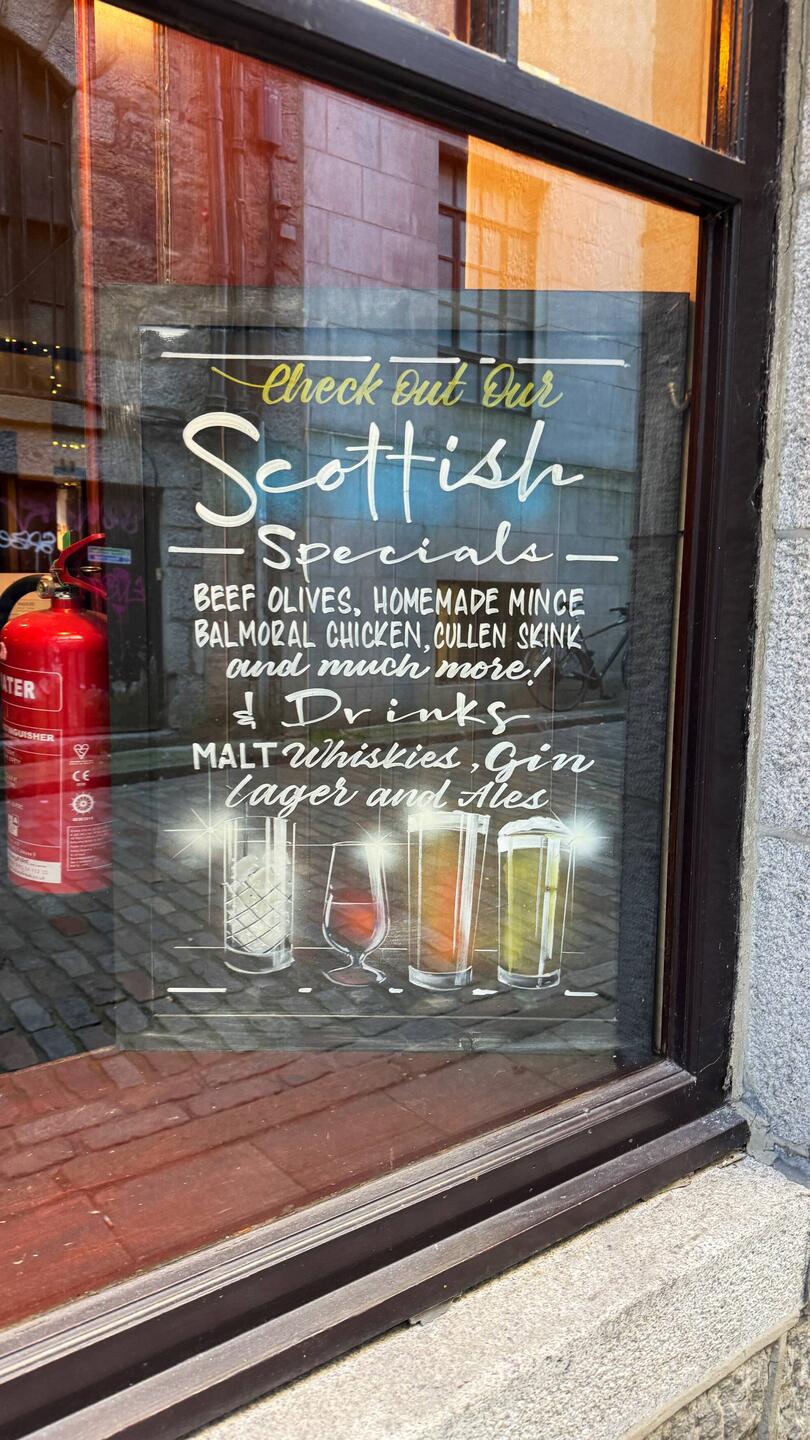 Check out Our
Scottish
Specials
BEEF OLIVES, HOMEMADE MINCE
BALMORAL CHICKEN, CULLEN SKINK
and much more!
& Drinks
MALT Whiskies, Gin
Lager and Ales
ATER
INGUISHER
CE